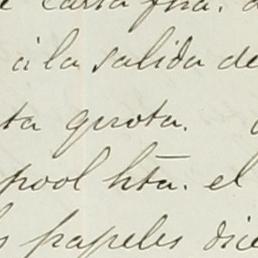 carta fha.
á la salida de
ta quota.
pool hta. el
s papeles dice